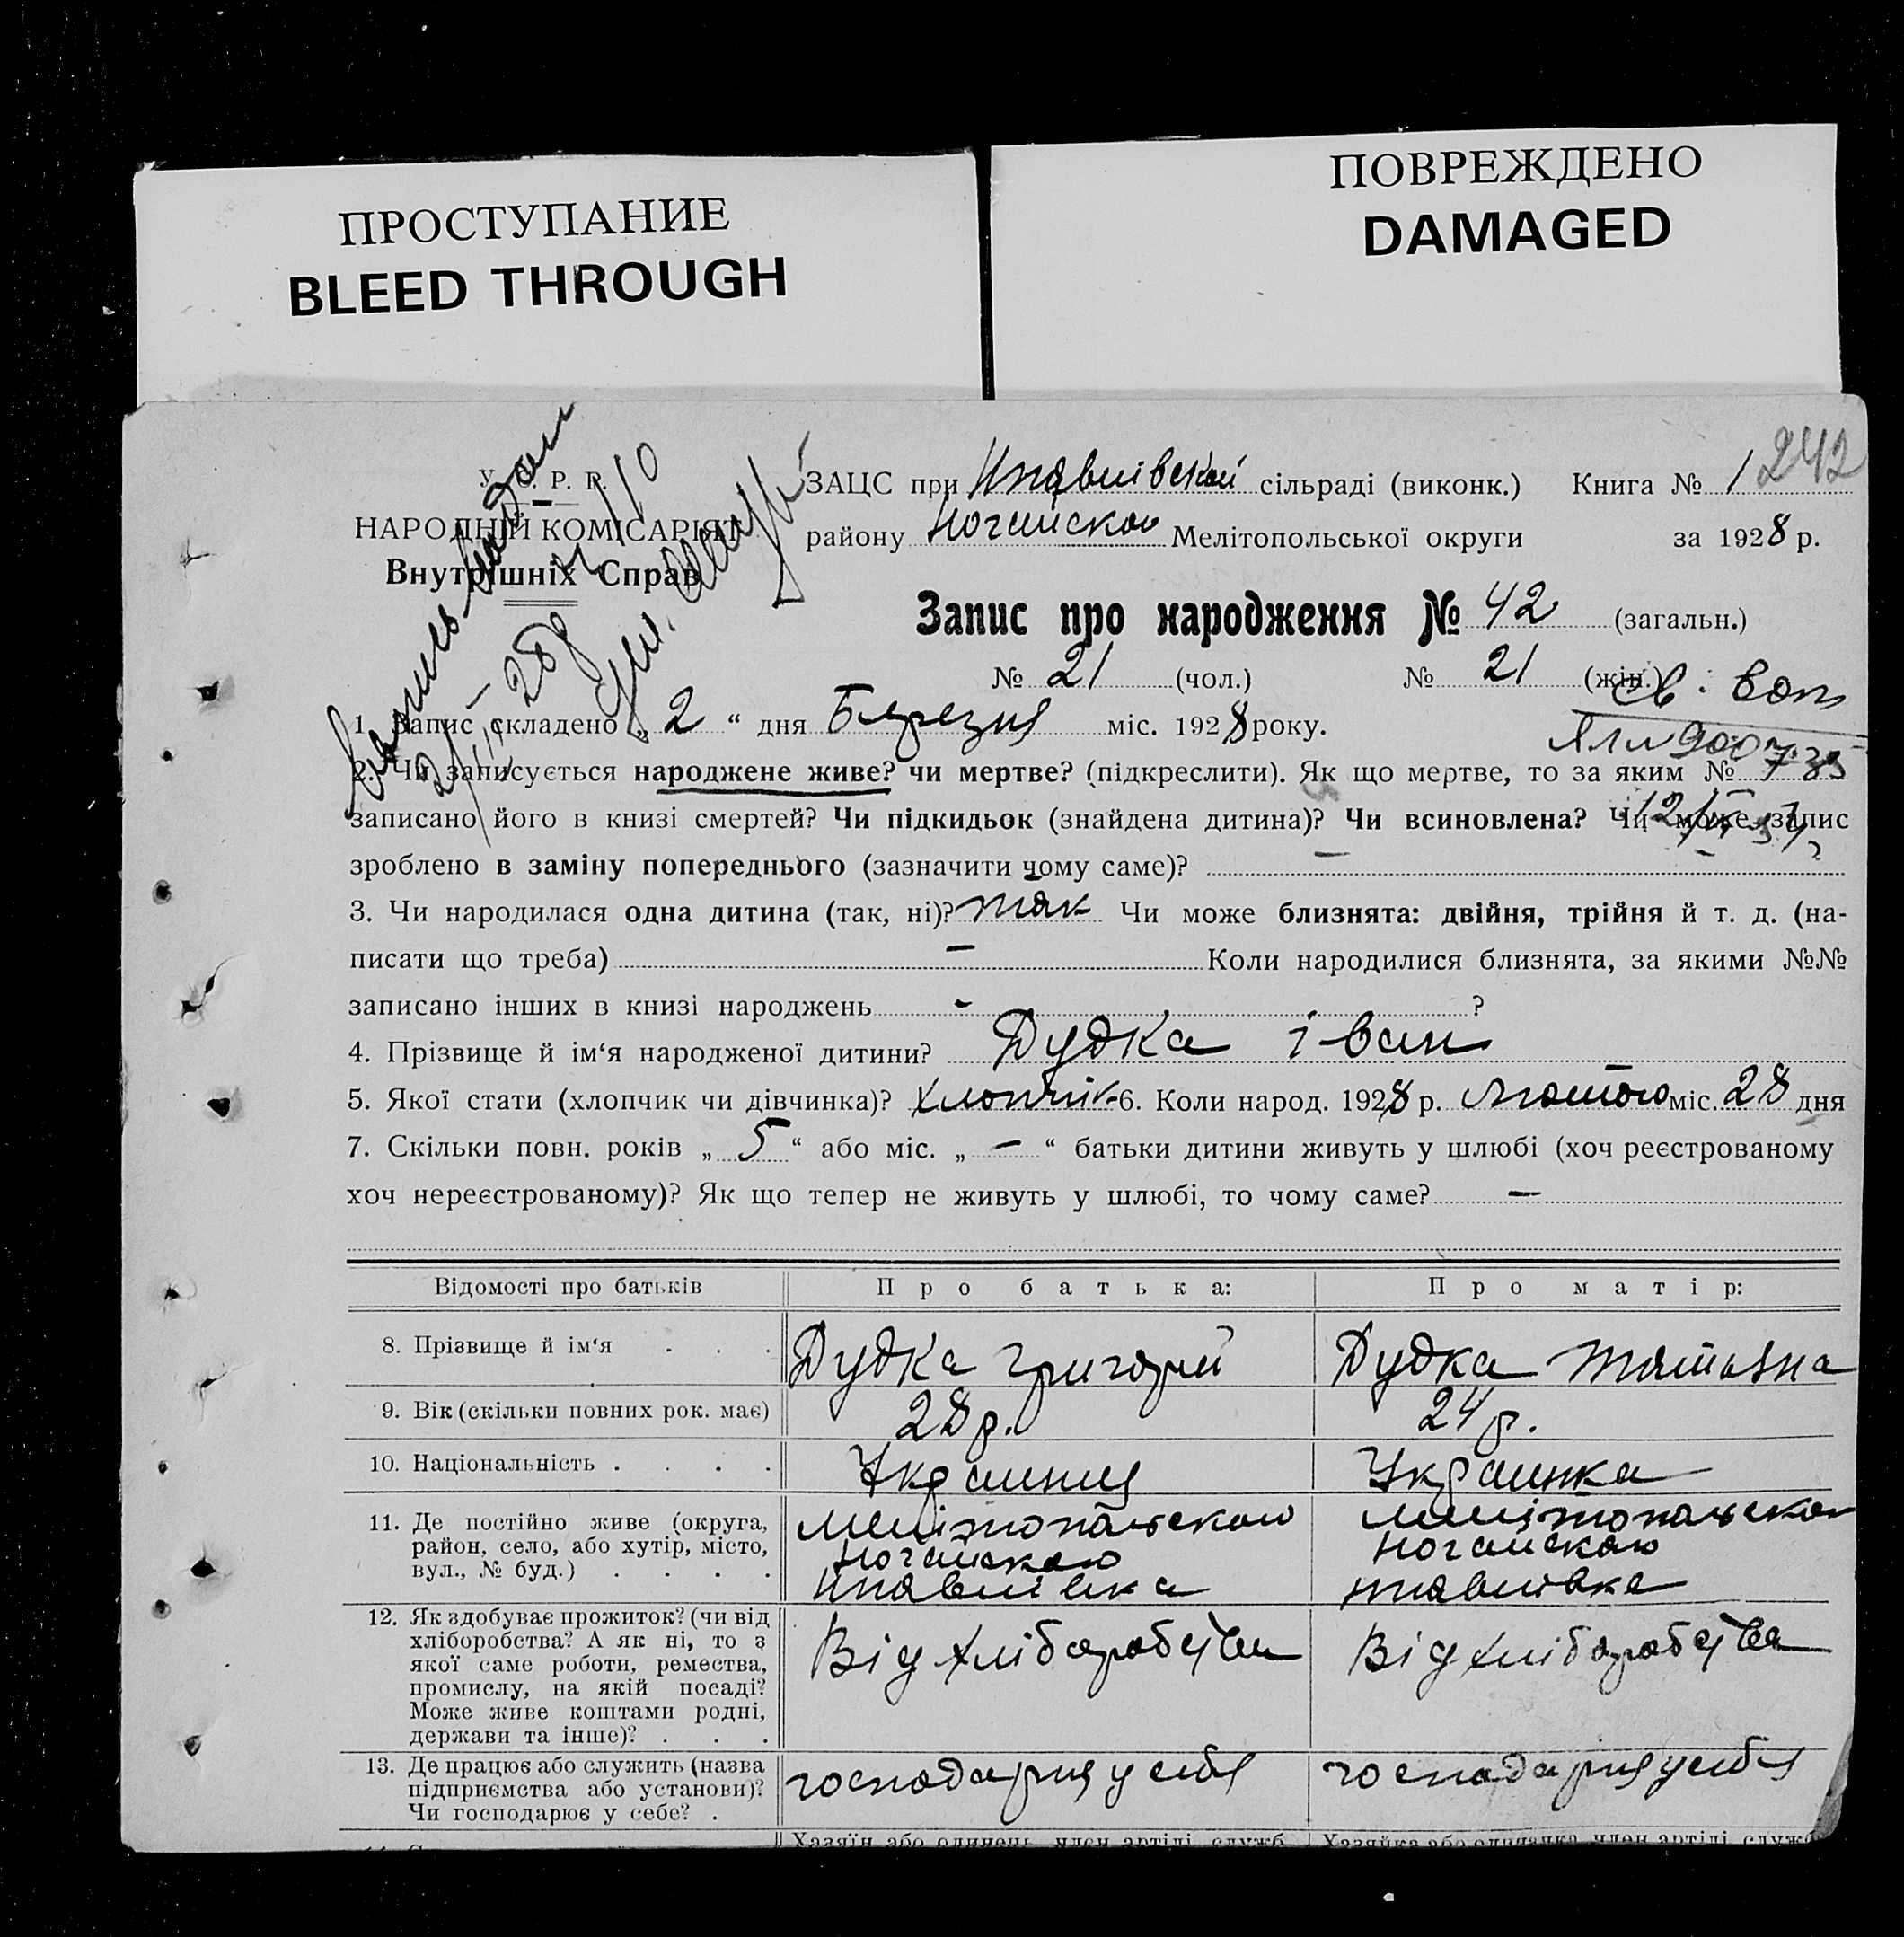 ПРОСТУПАНИЕ
BLEED THROUGH
ПОВРЕЖДЕНО
DAMAGED
У. С. Р. Р.
НАРОДНІЙ КОМІСАРІЯТ
Внутрішніх Справ
ЗАЦС при сільраді (виконк.) Книга № 1 242
району Ногайскою Мелітопольської округи за 1928 р.
Запис про народження № 42 (загальн.)
№ 21 (чол.) № 21 (жін.)
1. Запис складено „ 2 “ дня Березня міс. 1928 року.
2. Чи записується народжене живе? чи мертве? (підкреслити). Як що мертве, то за яким №
записано його в книзі смертей? Чи підкидьок (знайдена дитина)? Чи всиновлена? Чи може запис
зроблено в заміну попереднього (зазначити чому саме)? —
3. Чи народилася одна дитина (так, ні)? так Чи може близнята: двійня, трійня й т. д. (на-
писати що треба) — Коли народилися близнята, за якими №№
записано інших в книзі народжень - ?
4. Прізвище й ім‘я народженої дитини? Дудка іван
5. Якої стати (хлопчик чи дівчинка)? хлопчік 6. Коли народ. 1928 р. Лютого міс. 28 дня
7. Скільки повн. років „ 5 “ або міс. „ — “ батьки дитини живуть у шлюбі (хоч реєстрованому
хоч нереєстрованому)? Як що тепер не живуть у шлюбі, то чому саме? —
Відомості про батьків Про батька: Про матір:
8. Прізвище й ім‘я . . . Дудка Григорий Дудка Татьяна
9. Вік (скільки повних рок. має) 28 р. 24 р.
10. Національність . . . . Украинец Украинка
11. Де постійно живе (округа,
район, село, або хутір, місто,
вул., № буд.) . . . .
Мелітопольскою
Ногайскою
Мелітопольскою
Ногайскою
12. Як здобуває прожиток? (чи від
хліборобства? А як ні, то з
якої саме роботи, ремества,
промислу, на якій посаді?
Може живе коштами родні,
держави та інше)? . . .
Від хліборобства
Від хліборобства
13. Де працює або служить (назва
підприємства або установи)?
Чи господарює у себе? .
господарня у себя
господарня у себя
Хазяїн або одинець, член артілі, служб. Хазяйка або одиначка, член артілі, служб